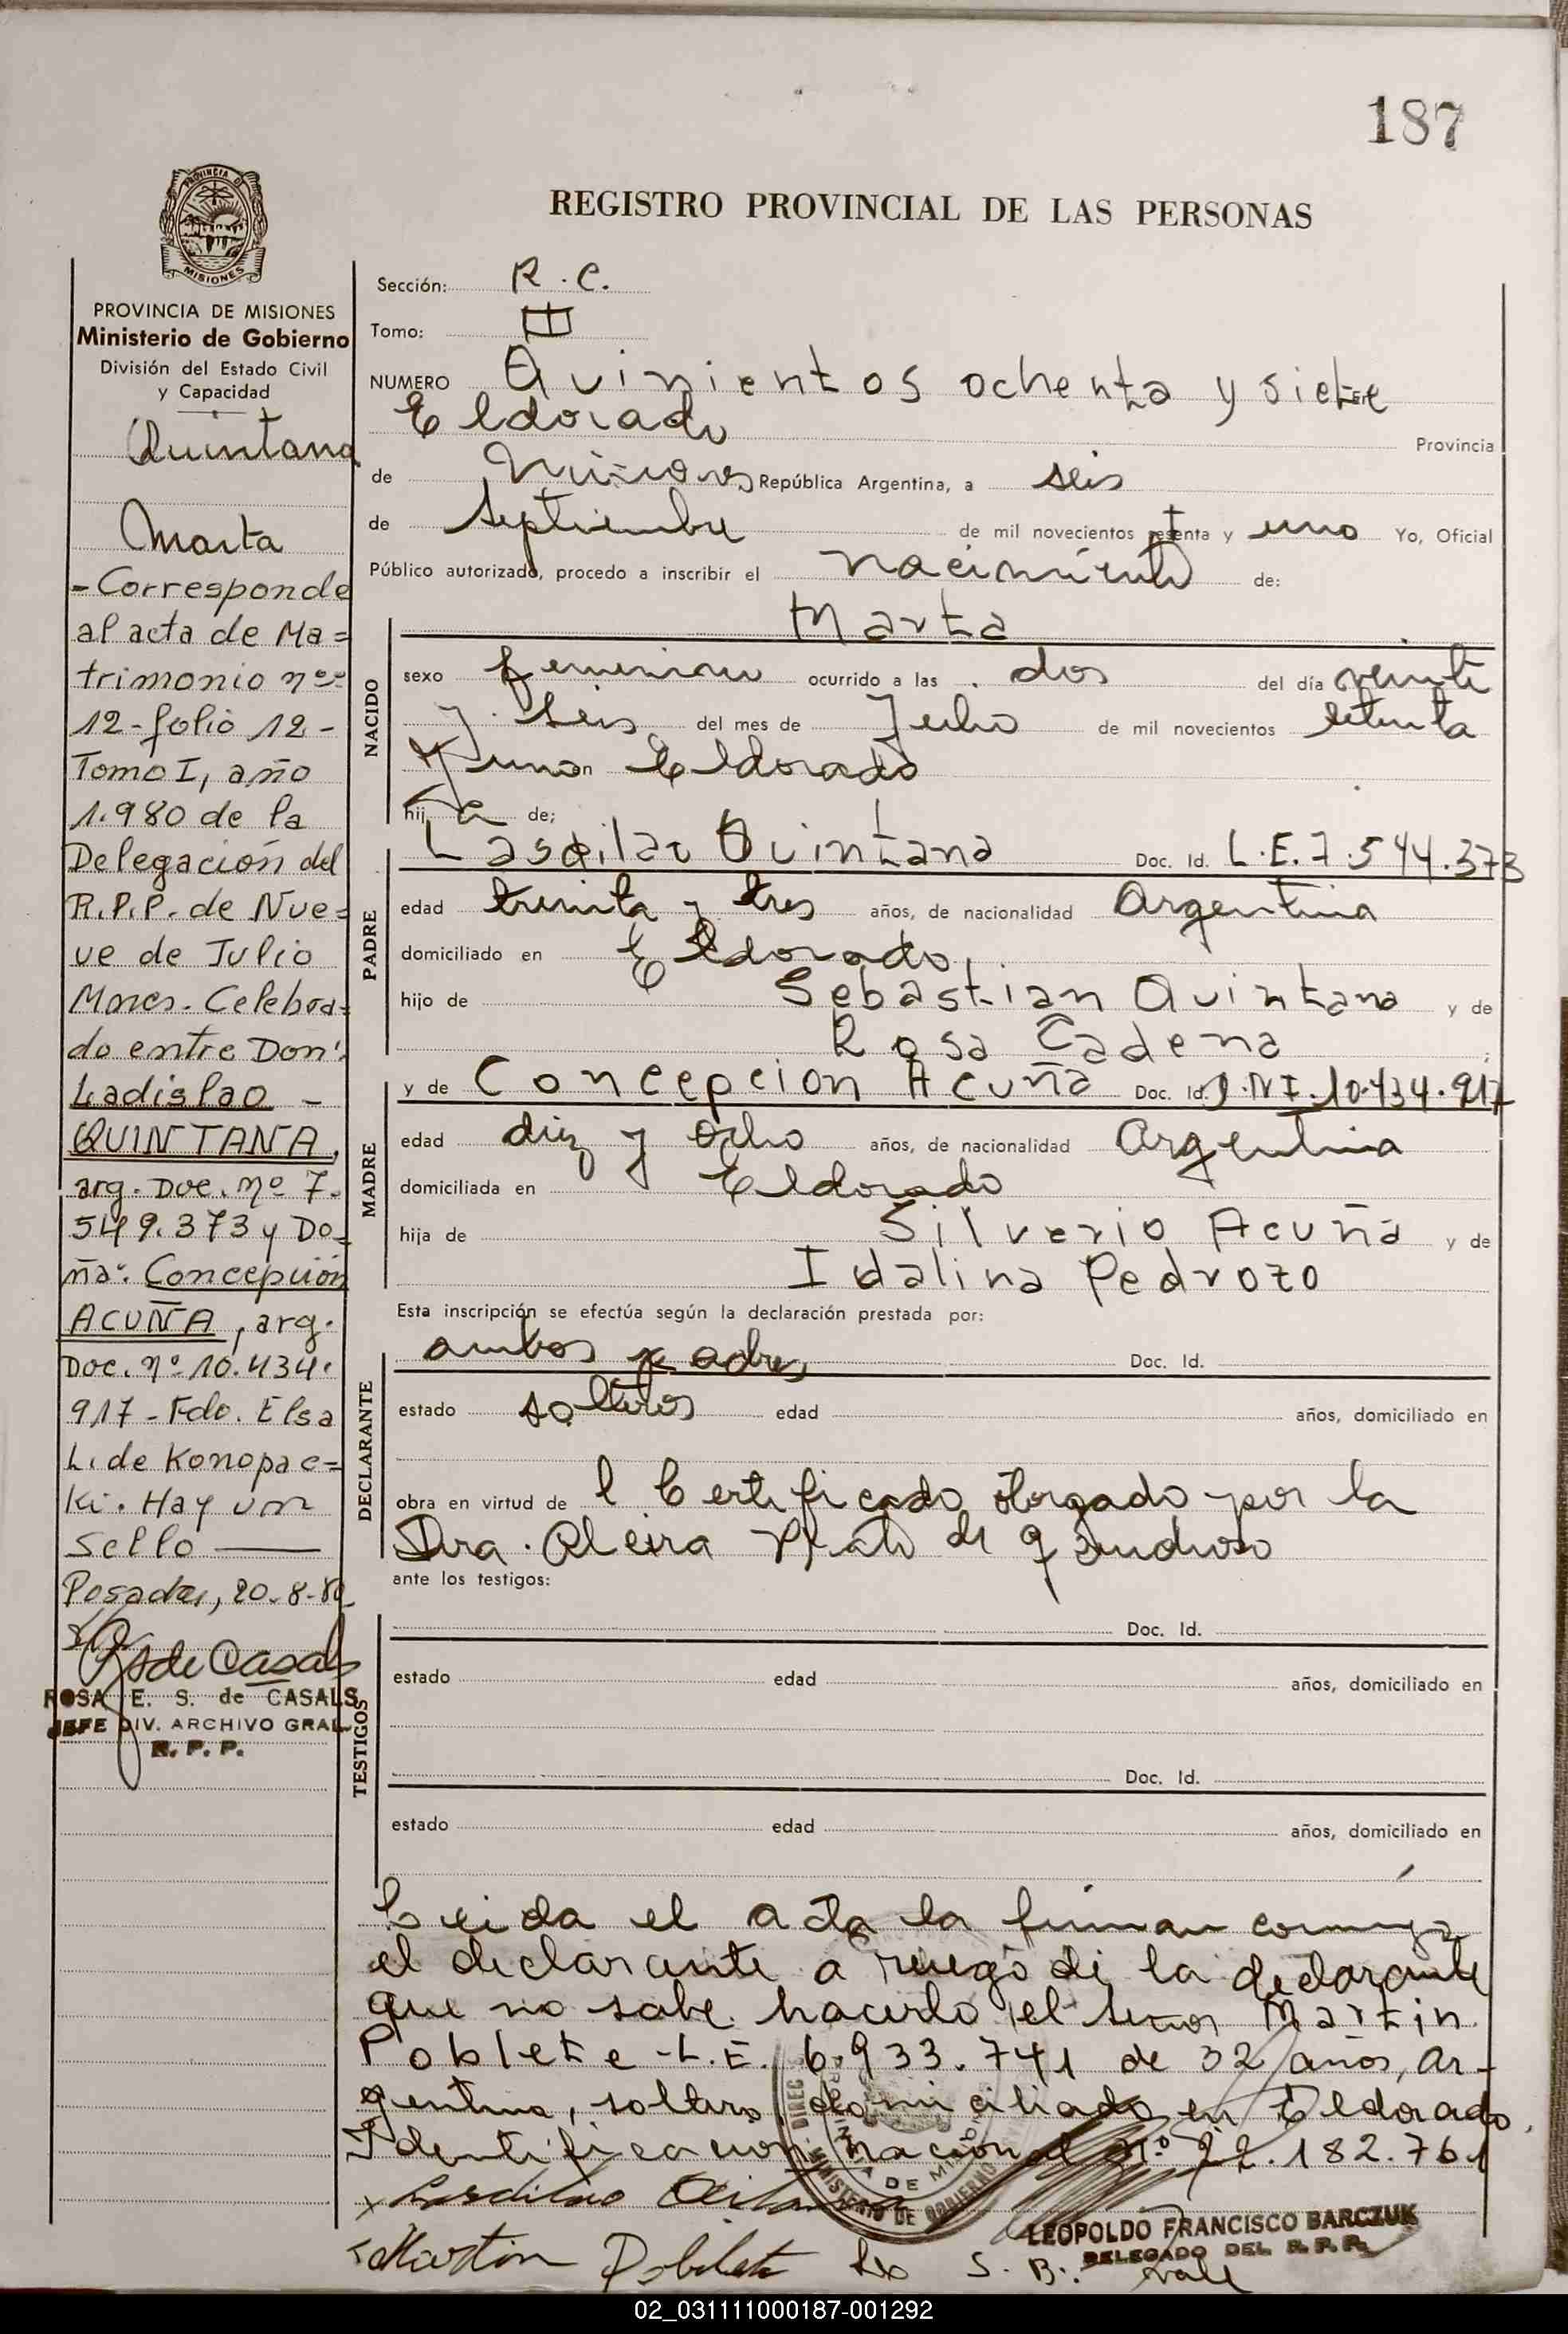 187
PROVINCIA DE
MISIONES
REGISTRO PROVINCIAL DE LAS PERSONAS
PROVINCIA DE MISIONES
Ministerio de Gobierno
División del Estado Civil
y Capacidad
Quintana
Marta
- Corresponde
al acta de Ma=
trimonio nº
12-folio 12-
Tomo I, año
1.980 de la
Delegación del
R.P.P. de Nue=
ve de Julio
Mnes. Celebra=
do entre Don:
Ladislao -
QUINTANA,
arg. Doc. nº 7.
549.373 y Do=
ña: Concepción
ACUÑA, arg.
Doc. nº 10.434.
917 - Fdo. Elsa
L. de Konopac=
Ki. Hay un
Sello
Posadas, 20-8-80
RsdeCasals
ROSA E. S. de CASALS
JEFE DIV. ARCHIVO GRAL.
R. P. P.
Sección: R.C.
Tomo: III
NUMERO Quinientos ochenta y siete
Eldorado
Provincia
de Misiones República Argentina, a seis
de Septiembre de mil novecientos setenta y uno Yo, Oficial
Público autorizado, procedo a inscribir el nacimiento de:
Marta
NACIDO
sexo femenino ocurrido a las dos del día veinti
y seis del mes de Julio de mil novecientos setenta
y uno en Eldorado
hij a de;
PADRE
Lasdilao Quintana Doc. Id. L.E.7.544.373
edad treinta y tres años, de nacionalidad Argentina
domiciliado en Eldorado,
hijo de Sebastian Quintana y de
Rosa Cadena ;
MADRE
y de Concepcion Acuña Doc. Id. D.N.I.10.434.917
edad diez y ocho años, de nacionalidad Argentina
domiciliada en Eldorado
hija de Silverio Acuña y de
Idalina Pedrozo
Esta inscripción se efectúa según la declaración prestada por:
DECLARANTE
ambos padres Doc. Id.
estado solteros edad años, domiciliado en
obra en virtud de l Certificado otorgado por la
Dra. Alcira de
ante los testigos:
TESTIGOS
Doc. Id.
estado edad años, domiciliado en
Doc. Id.
estado edad años, domiciliado en
Leida el acta la firman conmigo
el declarante a ruego de la declarante
que no sabe hacerlo el señor Martin
Poblete - L.E. 6.933.741 de 32 años, ar-
gentino, soltero, domiciliado en Eldorado,
Identificacion nacional nº 22.182.761
x Lasdilao Quintana
MINISTERIO DE GOBIERNO
LEOPOLDO FRANCISCO BARCZUK
DELEGADO DEL R.P.P.
Martin Poblete S. B. : vale
02_031111000187-001292